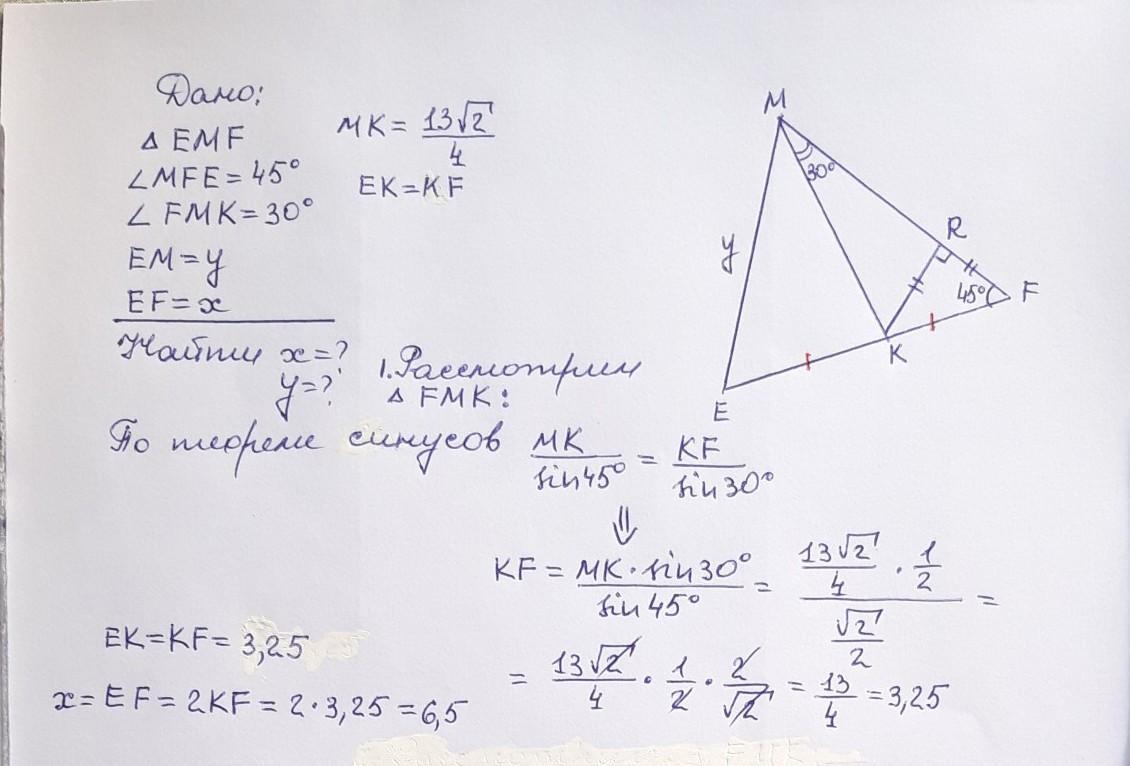 Дано:
△ EMF
∠MFE = 45°
∠ FMK = 30°
EM = y
EF = x
MK = 13√2/4
EK = KF
Найти x = ?
y = ?
1. Рассмотрим
△ FMK :
По теореме синусов MK/sin45° = KF/sin30°
⇓
KF = MK · sin30°/sin45° = (13√2/4 · 1/2)/(√2/2) =
= 13√2/4 · 1/2 · 2/√2 = 13/4 = 3,25
EK = KF = 3,25
x = EF = 2KF = 2 · 3,25 = 6,5
M
30°
y
R
45°
F
K
E